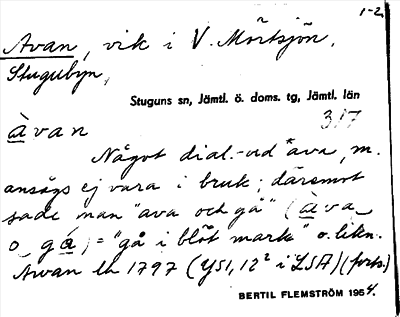 1-2.
Avan, vik i V. Mörtsjön,
Stugubyn,
Stuguns sn, Jämtl. ö. doms. tg, Jämtl. län
317
àvan
Något dial.-ord *ava, m.
ansågs ej vara i bruk; däremot
sade man "ava och gå" (àva
o gá) = "gå i blöt mark" o. likn.
Avan lh 1797 (Y51, 12² i LSA) (forts.)
BERTIL FLEMSTRÖM 1954.